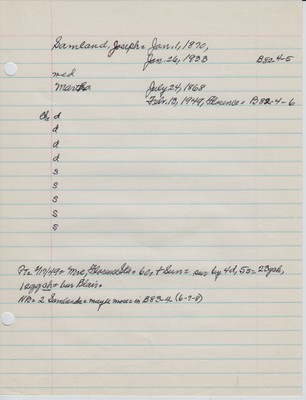 Samland, Joseph = Jan. 1, 1870,
Jan. 26, 1933 B82-4-5
med
Martha July 24, 1868
Feb. 13, 1949, Florence = B82-4-6
Ch d
d
d
d
s
s
s
s
s
2/17/49 = Mrs, Florence = Co, + Sun = sur by 4d, 5s = 23gch,
1 eggch = bur Blair.
NB = 2 Samlands = maybe more = in B83-4 (6-7-8)